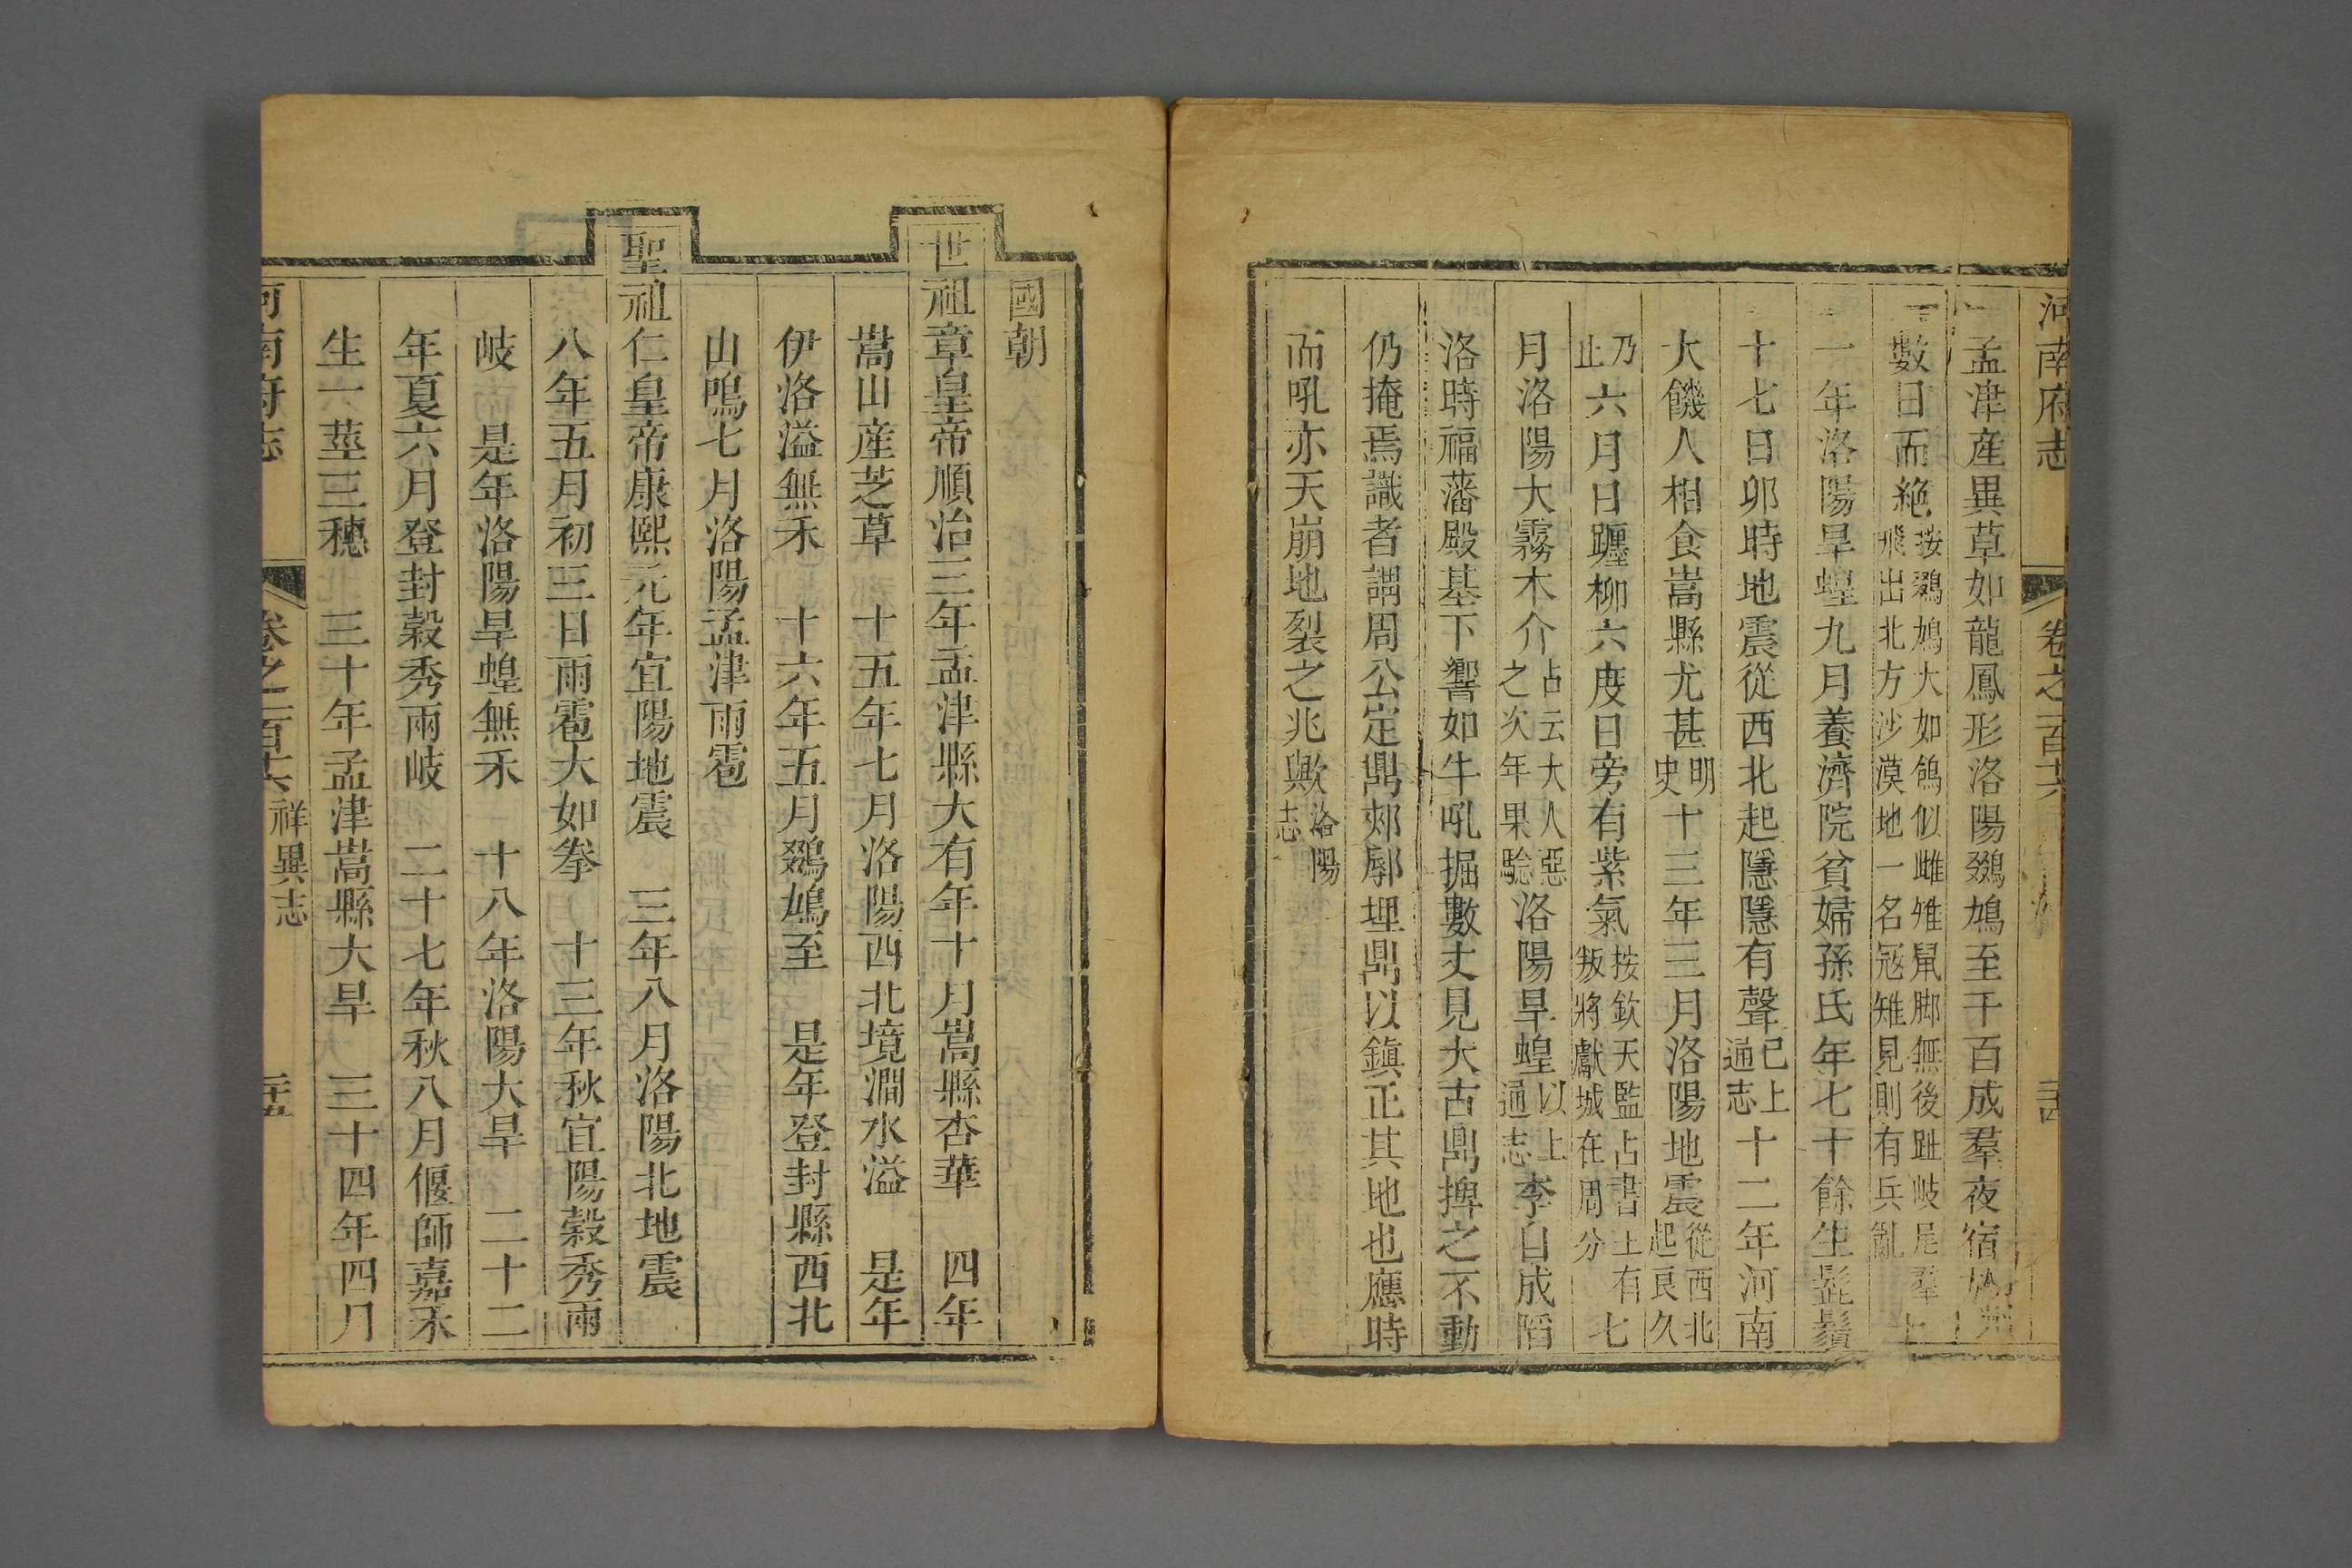 河南府志 卷之一百十六
孟津産異草如龍鳳形洛陽鵽鳩至千百成羣夜宿
數日而絶按鵽鳩大如鴿似雌雉鼠脚無後趾岐尾羣飛出北方沙漠地一名冦雉見則有兵亂
一年洛陽旱蝗九月養濟院貧婦孫氏年七十餘生髭鬚
十七日卯時地震從西北起隱隱有聲已上通志十二年河南
大饑人相食嵩縣尤甚明史十三年三月洛陽地震從西北起良久
乃止六月日躔柳六度日旁有紫氣按欽天監占書上有叛將獻城在周分七
月洛陽大霧木介占云大人惡之次年果驗洛陽旱蝗以上通志李自成陷
洛時福藩殿基下響如牛吼掘數丈見大古鼎捭之不動
仍掩焉識者謂周公定鼎郟鄏埋鼎以鎮正其地也應時
而吼亦天崩地裂之兆歟洛陽志
國朝
世祖章皇帝順治三年孟津縣大有年十月嵩縣杏華 四年
嵩山産芝草 十五年七月洛陽西北境澗水溢 是年
伊洛溢無禾 十六年五月鵽鳩至 是年登封縣西北
山鳴七月洛陽孟津雨雹
聖祖仁皇帝康熙元年宜陽地震 三年八月洛陽北地震
八年五月初三日雨雹大如拳 十三年秋宜陽穀秀兩
岐 是年洛陽旱蝗無禾 十八年洛陽大旱 二十二
年夏六月登封穀秀兩岐 二十七年秋八月偃師嘉禾
生一莖三穗 三十年孟津嵩縣大旱 三十四年四月
河南府志 卷之一百十六 祥異志 二十五